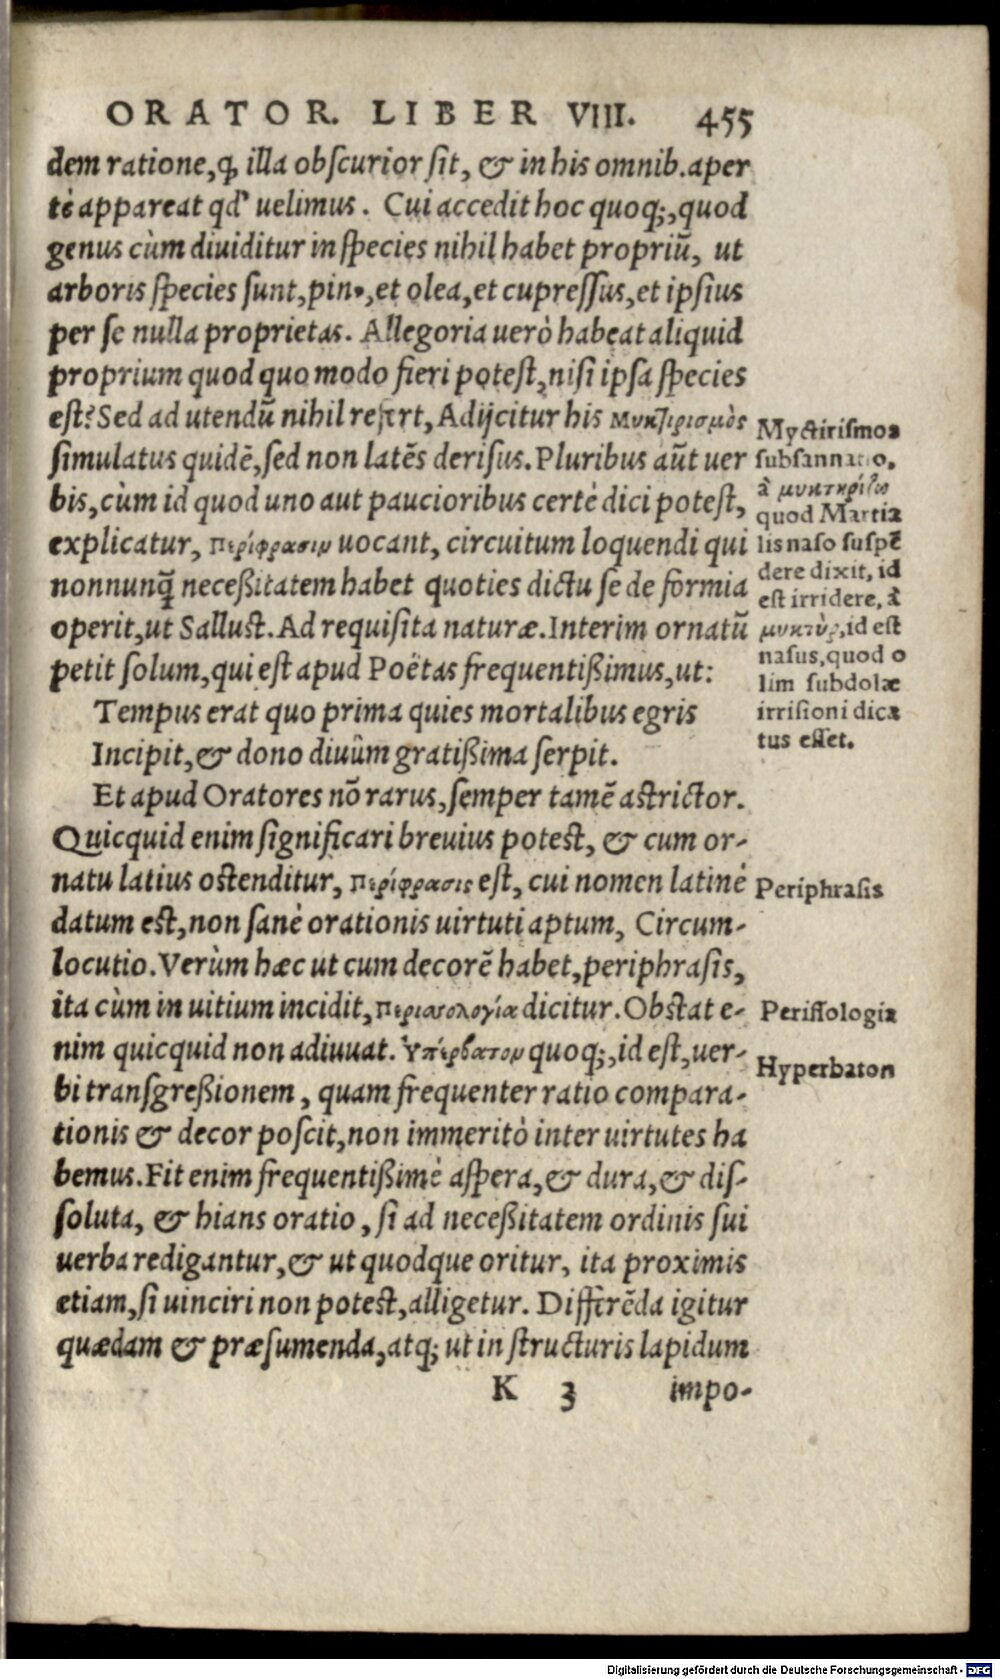 ORATOR. LIBER VIII. 455
dem ratione, ꝙ illa obſcurior ſit, & in his omnib. aper
tè appareat qd' uelimus. Cui accedit hoc quoq;, quod
genus cùm diuiditur in ſpecies nihil habet propriũ, ut
arboris ſpecies ſunt, pinꝰ, et olea, et cupreſſus, et ipſius
per ſe nulla proprietas. Allegoria uerò habeat aliquid
proprium quod quo modo fieri poteſt, niſi ipſa ſpecies
eſt? Sed ad utendũ nihil refert, Adijcitur his Μυκτιρισμὸς
ſimulatus quidẽ, ſed non latẽs deriſus. Pluribus aũt uer
bis, cùm id quod uno aut paucioribus certè dici poteſt,
explicatur, Περίφρασιν uocant, circuitum loquendi qui
nonnunq̃ neceßitatem habet quoties dictu ſe de formia
operit, ut Salluſt. Ad requiſita naturæ. Interim ornatũ
petit ſolum, qui eſt apud Poëtas frequentißimus, ut:
Tempus erat quo prima quies mortalibus egris
Incipit, & dono diuûm gratißima ſerpit.
Et apud Oratores nõ rarus, ſemper tamẽ aſtrictor.
Quicquid enim ſignificari breuius poteſt, & cum or-
natu latius oſtenditur, Περίφρασις eſt, cui nomen latinè
datum eſt, non ſanè orationis uirtuti aptum, Circum-
locutio. Verùm hæc ut cum decorẽ habet, periphraſis,
ita cùm in uitium incidit, Περισσολογία dicitur. Obſtat e-
nim quicquid non adiuuat. Ὑπέρβατον quoq;, id eſt, uer-
bi tranſgreßionem, quam frequenter ratio compara-
tionis & decor poſcit, non immeritò inter uirtutes ha
bemus. Fit enim frequentißimè aſpera, & dura, & diſ-
ſoluta, & hians oratio, ſi ad neceßitatem ordinis ſui
uerba redigantur, & ut quodque oritur, ita proximis
etiam, ſi uinciri non poteſt, alligetur. Differẽda igitur
quædam & præſumenda, atq; ut in ſtructuris lapidum
K 3 impo-
Myctiriſmos
ſubſannatio.
à μυκτηρίζω
quod Martia
lis naſo ſuſpẽ
dere dixit, id
eſt irridere, à
μυκτὺρ, id eſt
naſus, quod o
lim ſubdolæ
irriſioni dica
tus eſſet.
Periphraſis
Periſſologia
Hyperbaton
Digitalisierung gefördert durch die Deutsche Forschungsgemeinschaft - DFG